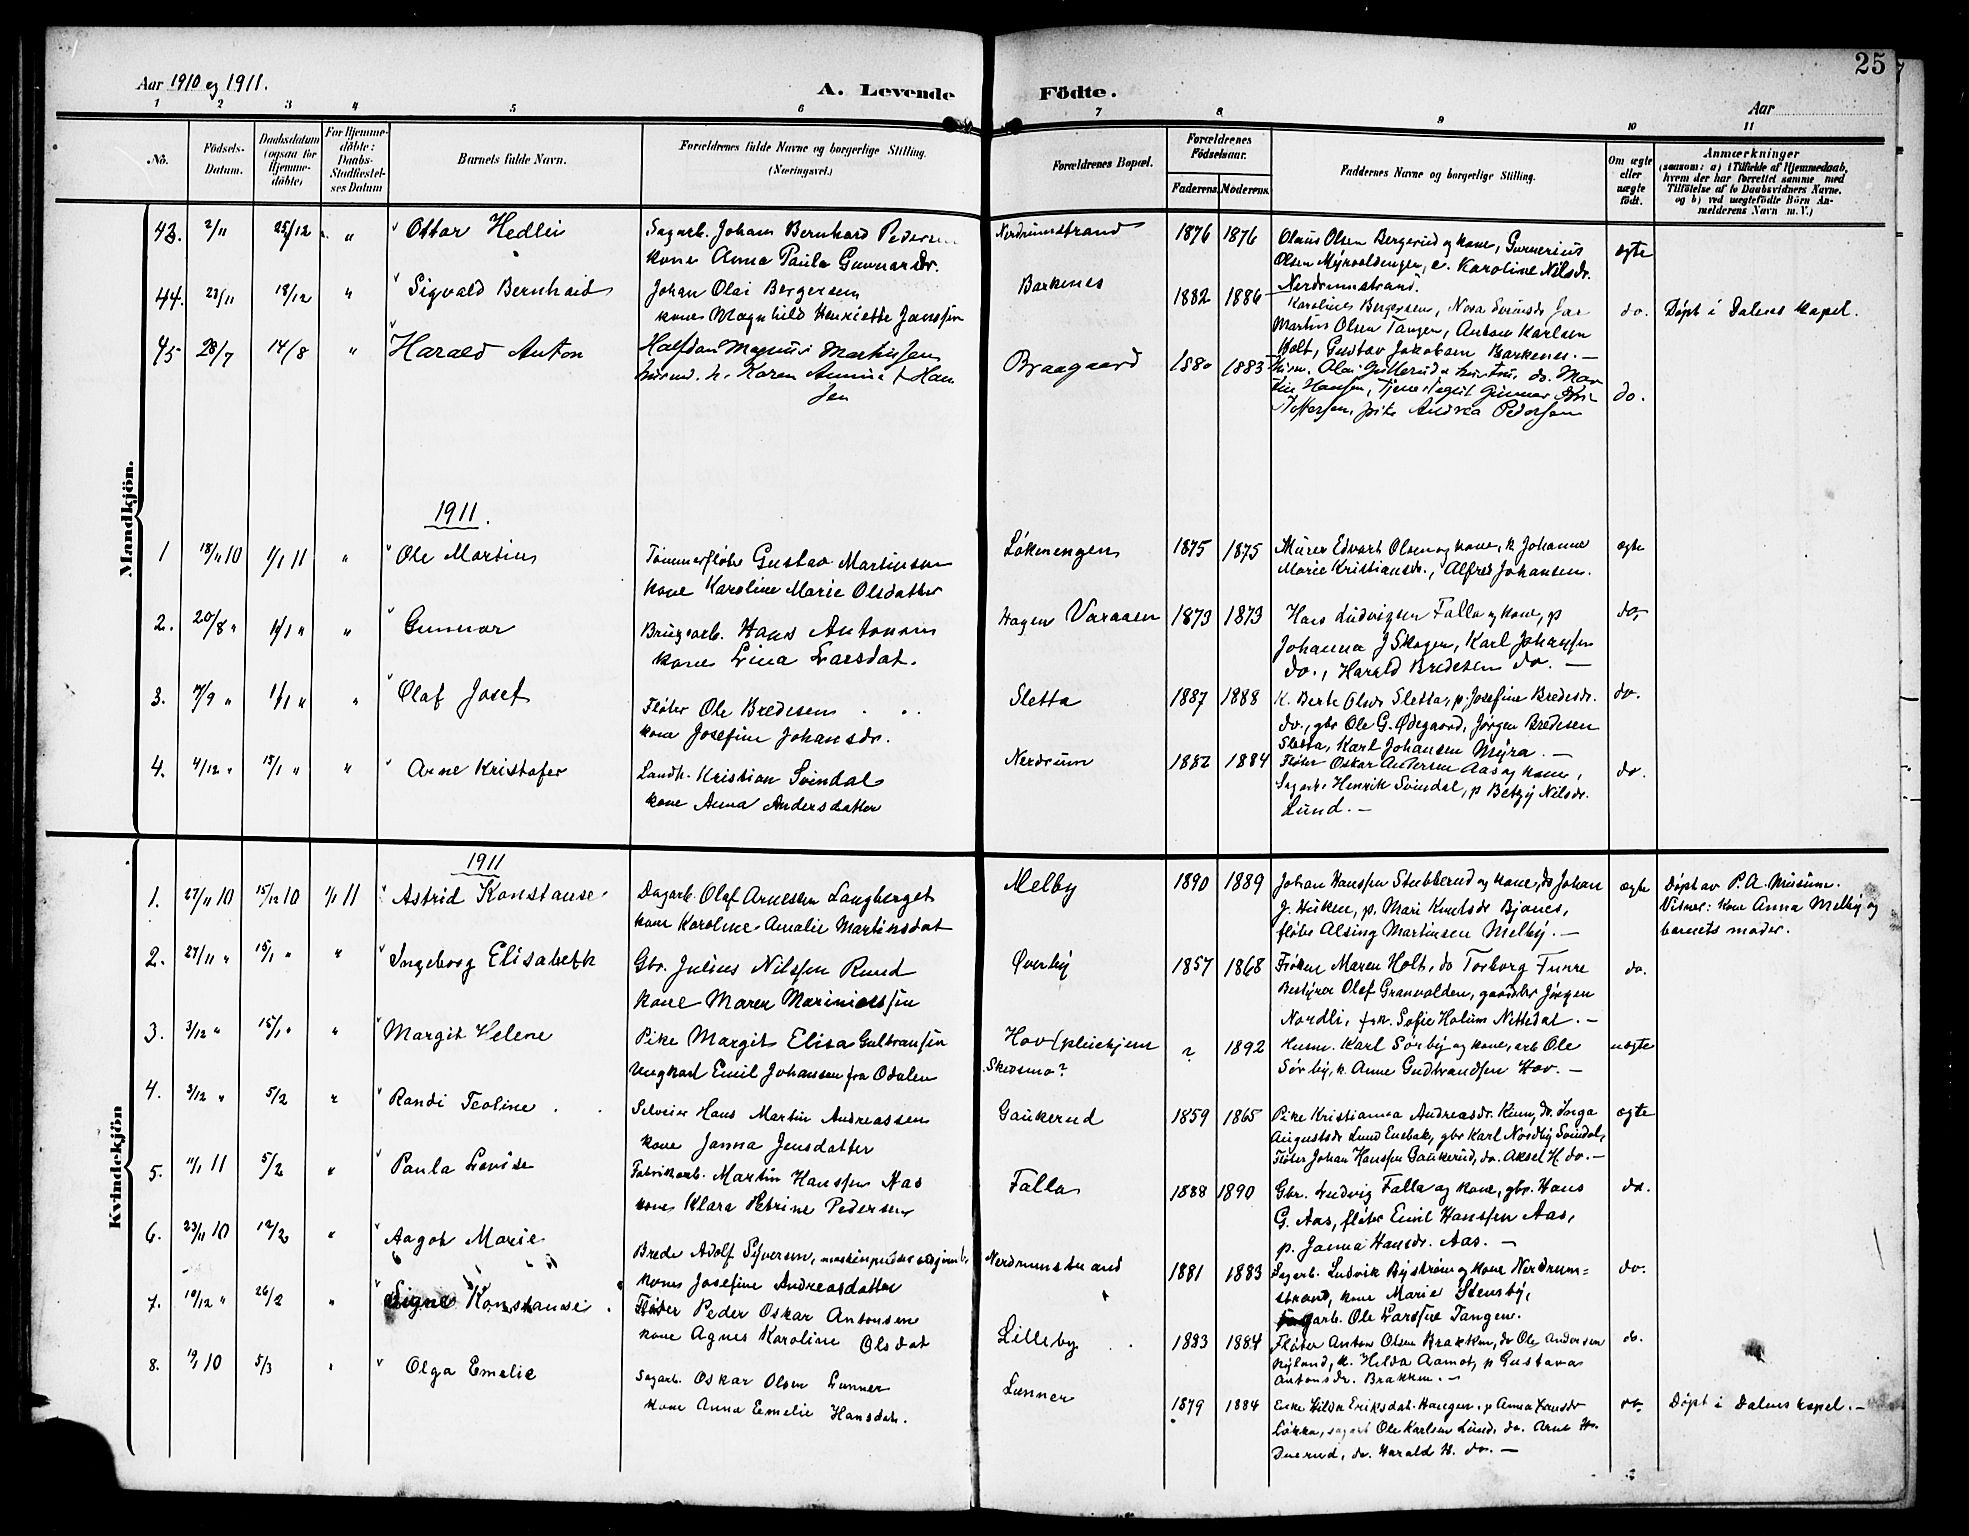 25
Aar 1910 og 1911.
A. Levende Födte.
Aar
1 2 3 4 5 6 7 8 9 10 11
No.
Födsels-Datum.
Daabsdatum (ogsaa for Hjemme-döbte)
For Hjemme-döbte: Daabs-Stadfæstel-ses Datum
Barnets fulde Navn.
Forældrenes fulde Navne og borgerlige Stilling. (Næringsvei.)
Forældrenes Bopæl.
Forældrenes Födselsaar.
Faderens. Moderens.
Faddernes Navne og borgerlige Stilling.
Om ægte eller uægte födt.
Anmærkninger
(saasom: a) i Tilfælde af Hjemmedaab, hvem der har forrettet samme med Tilföielse af to Daabsvidners Navne. og b) ved uægtefödte Börn An-melderens Navn m. V.)
Mandkjön.
43. 2/11 25/12 " Ottar Hedlei
Sagarb. Johan Bernhard Pedersen
kone Anna Paula Gunnarsdr.
Nerdrumstrand 1876 1876
Olaus Olsen Bergerud og kone, Gunnerius
Olsen Myrvoldengen, e. Karoline Nilsdr.
Nerdrumstrand.
ægte
44. 23/11 18/12 " Sigvald Bernhard
Johan Olai Bergersen
kone Magnhild Henriette Janssen
Barkenes 1882 1886
Karolines Bergersen, Nora
Martin Olsen Tangen, Anton Karlsen
Holt, Gustav Jakobsen Barkenes. —
do. Døpt i Dalens kapel.
45 28/7 14/8 " Harald Anton
Halfdan Magnus Martinsen
Karen Annine Han
sen
Braagaard 1880 1883
Olai
Hansen, Gunnar
Andrea Pedersen
do.
1911.
1 18/11 10 1/1 11 " Ole Martin
Tømmerfløter Gustav Martinsen
kone Karoline Marie Olsdatter
Løkmengen 1875 1875
Murer Edvart Olsen og kone, k Johanne
Marie Kristiansdr., Alfred Johansen.
ægte
2. 20/8 " 1/1 " " Gunnar
Brugsarb. Hans Antonsen
kone Lina Larsdat.
Hagen Varaasen 1873 1873
Hans Ludvigsen Falla og kone, p
Johanna J Skogen, Karl Johanssen
do., Harald Bredesen do. —
do.
3. 17/9 " 1/1 " " Olaf Josef
Fløter Ole Bredesen
kone Josefine Johansdr.
Sletta 1887 1888
K. Berte Olsdr Sletta, p. Josefine Bredesdr.
do., gbr Ole G. Ødegaard, Jørgen Bredesen
Sletta, Karl Johansen Myra. —
do.
4. 4/12 " 15/1 " " Arne Kristofer
Landh. Kristian Svindal
kone Anna Andersdatter
Nerdrum 1882 1884
Fløter Oskar Andersen Aas og kone,
Sagarb. Henrik Svindal, p Betzy Nilsdr.
Lund. —
do.
Kvindekjön
1911
1. 27/11 10 15/12 10 1/1 11 Astrid Konstanse
Dagarb. Olaf Arnesen Langberget
kone Karoline Amalie Martinsdat
Melby 1890 1889
Johan Hanssen Stubberud og kone, do Johan
J. Huken, p. Mari Knutsdr Bjanes,
fløter Alsing Martinsen Melby. —
ægte
Døpt av P. A. Musum.
Vitner: kone Anna Melby og
barnets moder.
2. 27/11 " 15/1 " " Ingeborg Elisabeth
Gbr. Julius Nilssen Rund
kone Maren Mariniussen
Øverby 1857 1868
Frøken Maren Holt, do Torborg Funre
Bestyrer Olaf Granvolden, gaardbr Jørgen
Nordli, frk. Sofie Holum Nittedal. —
do.
3. 3/12 " 15/1 " " Margit Helene
Pike Margit Elisa Gulbransen
ungkarl Emil Johansen fra Odalen
Hov (pleiehjem
Skedsmo? ? 1892
Husm. Karl Sørby og kone, arb Ole
Sørby, k. Anne Gudbrandsen Hov. —
uægte
4. 3/12 " 5/2 " Randi Teoline
Selveier Hans Martin Andreassen
kone Janna Jensdatter
Gaukerud 1859 1865
Pike Kristianna Andreasdr. do. Inga
Augustsdr Lund Enebak, gbr Karl Nordby Svindal,
Fløter Johan Hanssen Gaukerud, do. Aksel H do. —
ægte
5. 11/1 11 5/2 " Paula Lovise
Fabrikarb. Martin Hanssen Aas
kone Klara Petrine Pedersen
Falla 1888 1890
Gbr. Ludvig Falla og kone, gbr. Hans
G. Aas, fløter Emil Hanssen Aas,
p. Janna Hansdr. Aas. —
do.
6. 23/11 10 12/2 " Aagot Marie
Brede Adolf Syversen,
kone Josefine Andreasdatter
Nerdrumstrand 1881 1883
Sagarb. Ludvik Bystrøm og kone Nerdrum=
strand, kone Marie Stensby,
Sagarb. Ole Larssen Tangen.
do.
7. 10/12 " 26/2 " Signe Konstanse
Fløter Peder Oskar Antonsen
kone Agnes Karoline Olsdat
Lilleby 1883 1884
Fløter Anton Olsen Brakken, do Ole Andersen
Nyland, k. Hilda Aamot, p Gustava
Antonsdr. Brakken. —
do.
8. 19/ 10 5/3 " Olga Emelie
Sagarb. Oskar Olsen Lunner
kone Anna Emelie Hansdat.
Lunner 1879 1884
Enke Hilda Eriksdat. Haugen. p Anna
Løkka, sagarb Ole Karlsen Lund, do. Arne H.
Duerud, do. Harald H. do. —
do. Døpt i Dalens kapel. —